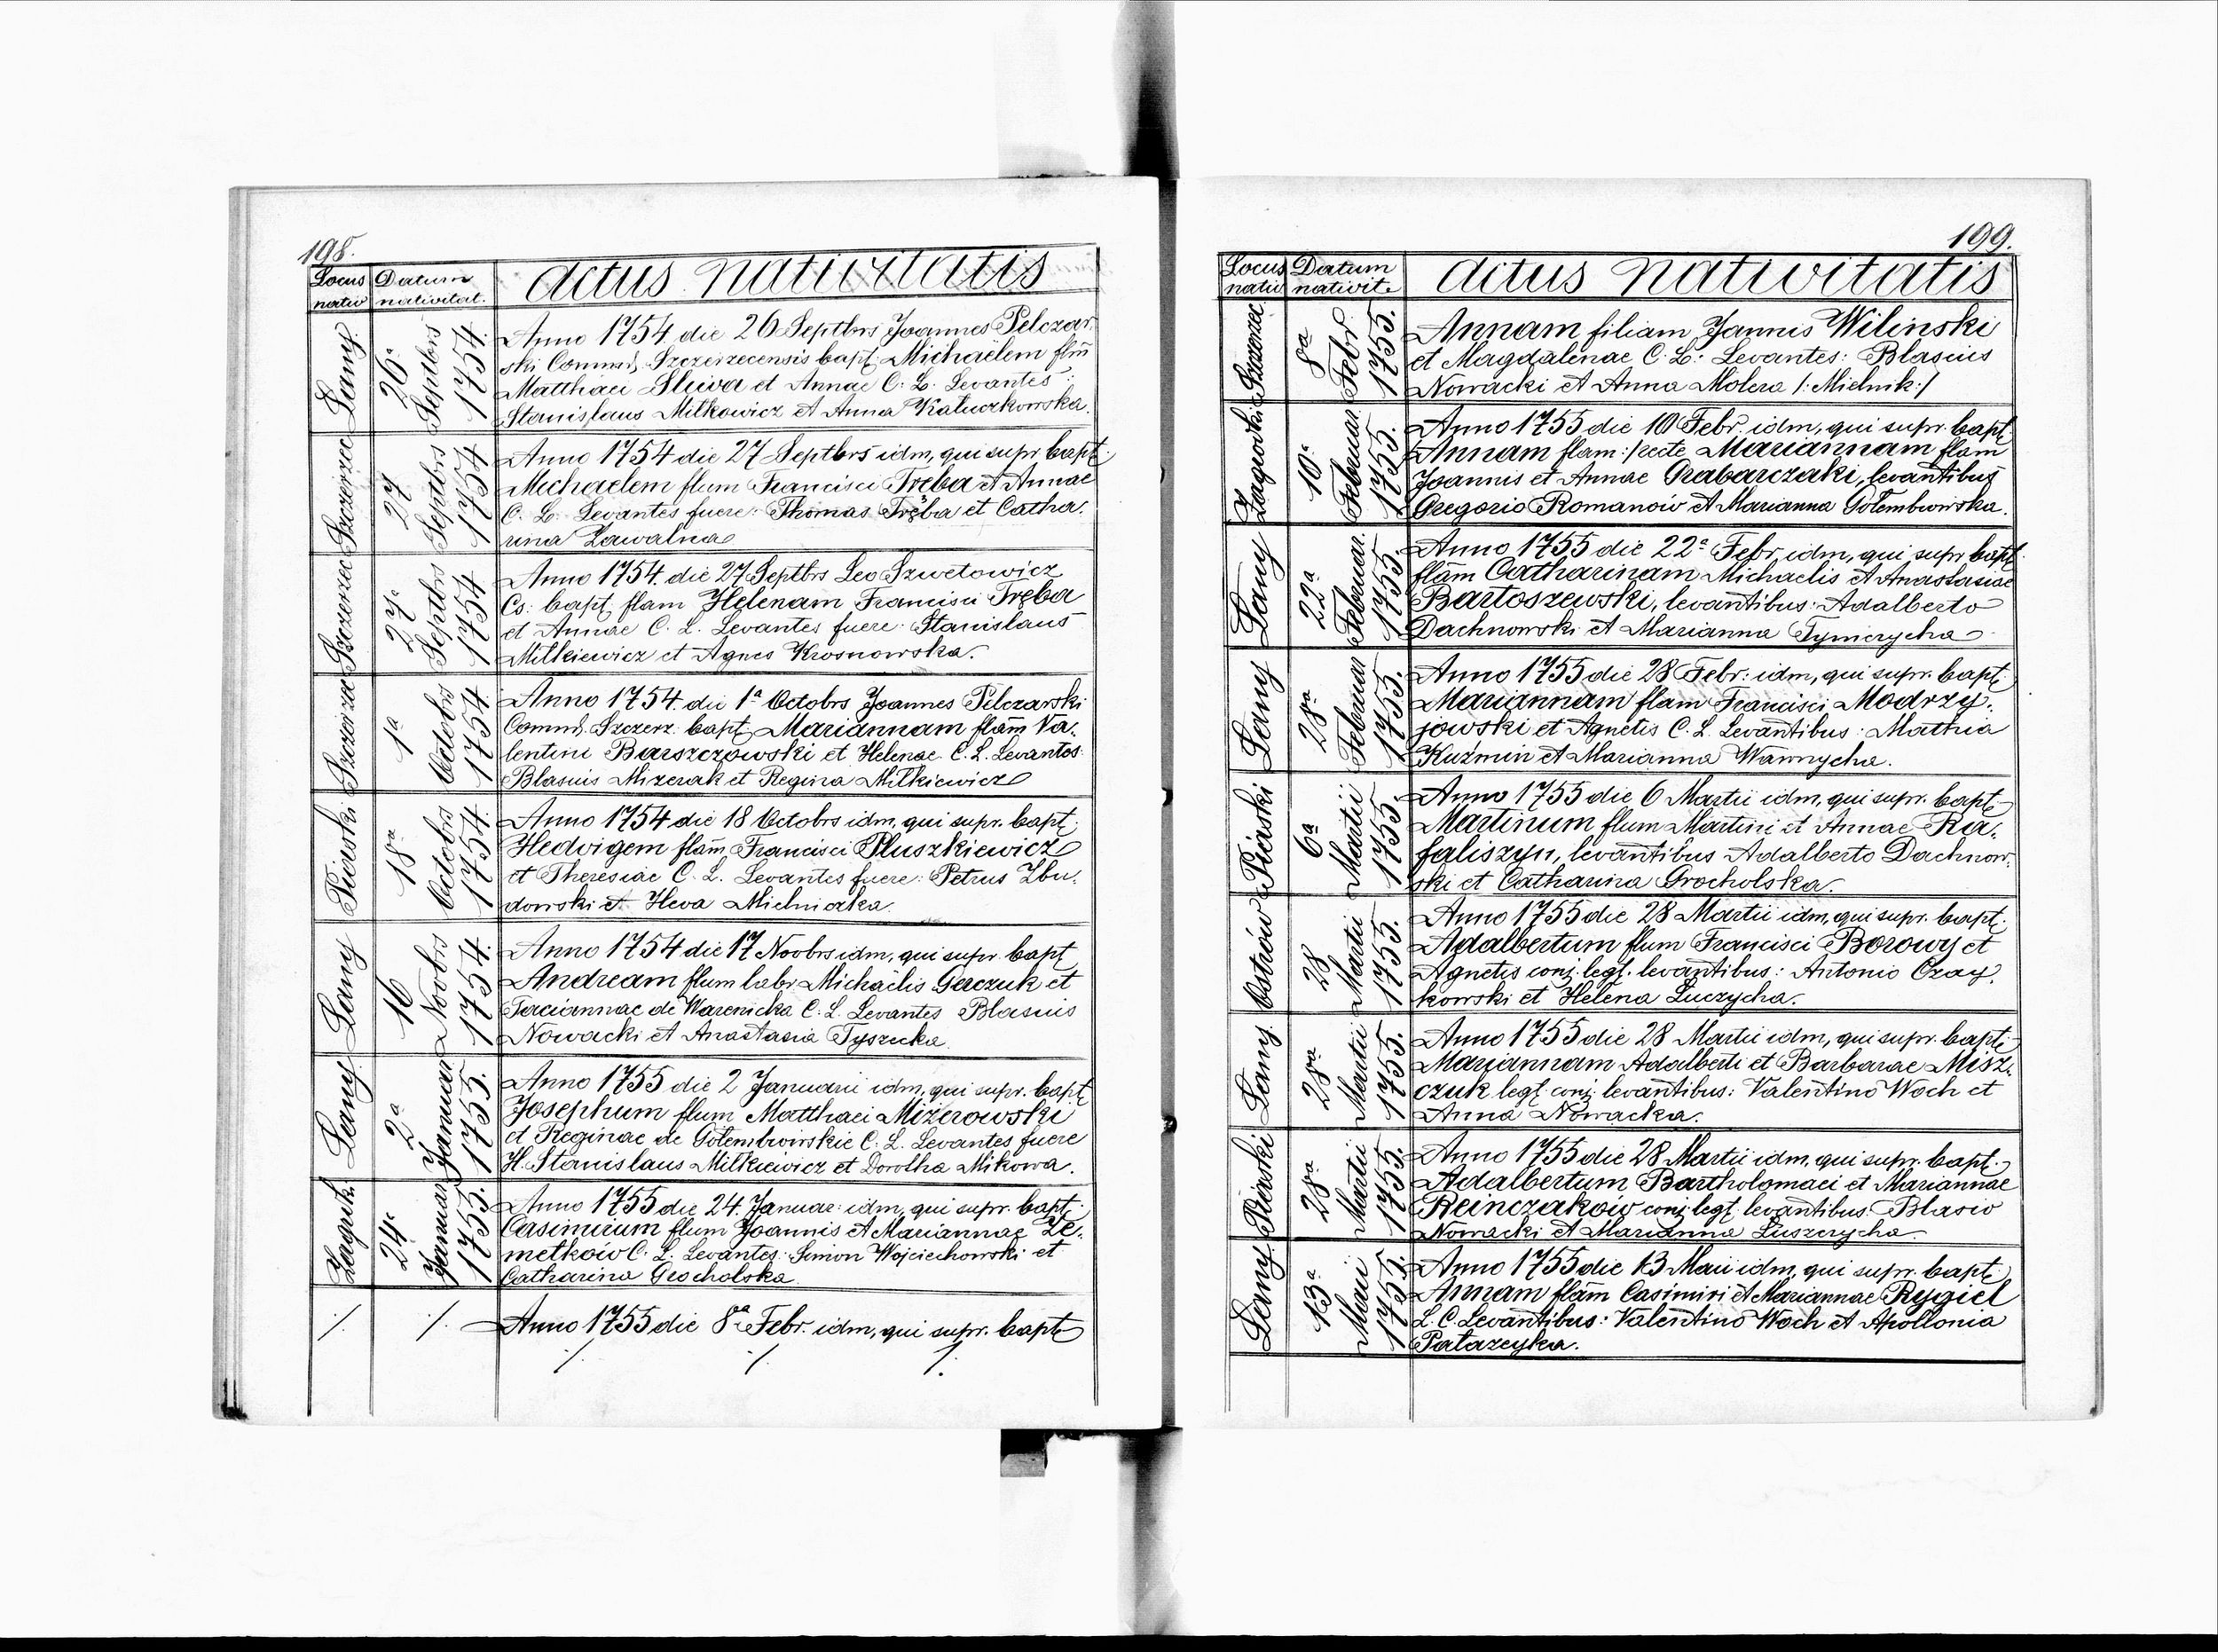 198.
Locus nativ
Datum nativitat.
Actus nativitatis
Łany
26a Septbrs 1754.
Anno 1754 die 26 Septbrs Joannes Pelczar-
ski Commd. Szczerzecensis bapt. Michaëlem flm
Matthaei Sliwa et Annae C. L. Levantes:
Stanislaus Milkowicz et Anna Kaluczkowska.
Szczerzec
27 Septbrs 1754
Anno 1754 die 27 Septbrs idm, qui supr bapt.
Michaelem flum Francisci Tręba et Annae
C. L. Levantes fuere: Thomas Tręba et Catha-
rina Zawalna
Szczerzec
27a Septbrs 1754
Anno 1754. die 27 Septbrs Leo Szwetowicz
Cs: bapt. flam Helenam Francisci Tręba
et Annae C. L. Levantes fuere: Stanislaus
Milkiewicz et Agnes Krosnowska.
Szczerzec
1a Octobrs 1754.
Anno 1754. die 1a Octobrs Joannes Pelczarski
Commd. Szczerz. bapt. Mariannam flam Va-
lentini Barszczowski et Helenae C. L. Levantes:
Blasius Mizerak et Regina Milkiewicz
Piaski
18a Octobrs 1754.
Anno 1754 die 18 Octobrs idm, qui supr. bapt.
Hedvigem flam Francisci Pluszkiewicz
et Theresiae C. L. Levantes fuere: Petrus Zbu-
dowski et Heva Mielniczka.
Łany
16 Novbrs 1754.
Anno 1754 die 17 Novbrs idm, qui supr. bapt
Andream flum labr Michaëlis Gerczuk et
Taciannae de Warenicka C. L. Levantes Blasius
Nowacki et Anastasia Tyszucka.
Łany
2a Januar 1755.
Anno 1755 die 2 Januarii idm, qui supr. bapt
Josephum flum Matthaei Mizerowski
et Reginae de Gołembwirskie C. L. Levantes fuere
H. Stanislaus Milkiewicz et Dorotha Mikowa.
Zagork.
24a Januar 1755.
Anno 1755 die 24. Januar: idm, qui supr. bapt.
Casimirum flum Joannis et Mariannae Ze-
metków C. L. Levantes: Simon Wojciechowski et
Catharina Grocholska.
Anno 1755 die 8a Febr. idm, qui supr. bapt
./. ./. ./. ./. ./.
199.
Locus nativ
Datum nativit.
Actus nativitatis
Szczerzec
8a Febr 1755.
Annam filiam Jannis Wilinski
et Magdalenae C. L: Levantes: Blasius
Nowacki et Anna Molera /:Mielnik:/
Zagorski
10a Februar. 1755.
Anno 1755 die 10 Febr. idm, qui supr. bapt.
Annam flam:/recte Mariannam flam
Joannis et Annae Grabarczaki, levantibus
Gregorio Romanow et Marianna Gołembwirska.
Łany
22a Februar. 1755.
Anno 1755 die 22a Febr. idm, qui supr bapt.
flam Catharinam Michaelis et Anastasiae
Bartoszewski, levantibus: Adalberto
Dachnowski et Marianna Tymczycha
Łany
28a Februar 1755.
Anno 1755 die 28 Febr: idm, qui supr. bapt.
Mariannam flam Francisci Modrzy-
jowski et Agnetis C. L. Levantibus: Mathia
Kuźmin et Marianna Wawrzycha.
Piaski
6a Martii 1755.
Anno 1755 die 6 Martii idm, qui supr. bapt.
Martinum flum Martini et Annae Ra-
faliszyn, levantibus Adalberto Dachnow-
ski et Catharina Grocholska.
Ostrów
28 Martii 1755.
Anno 1755 die 28 Martii idm, qui supr. bapt.
Adalbertum flum Francisci Borowy et
Agnetis conj. legt. levantibus: Antonio Czay-
kowski et Helena Luczycha.
Łany
28a Martii 1755.
Anno 1755 die 28 Martii idm, qui supr. bapt.
Mariannam Adalberti et Barbarae Misz-
czuk legt conj. levantibus: Valentino Woch et
Anna Nowacka.
Piaski
28a Martii 1755.
Anno 1755 die 28 Martii idm, qui supr. bapt.
Adalbertum Bartholomaei et Mariannae
Reinczaków conj. legt. levantibus. Blasio
Nowacki et Marianna Luszczycha
Łany
13a Maii 1755.
Anno 1755 die 13 Maii idm, qui supr. bapt.
Annam flam Casimiri et Mariannae Rygiel
L. C. Levantibus: Valentino Woch et Apollonia
Patarzeyka.